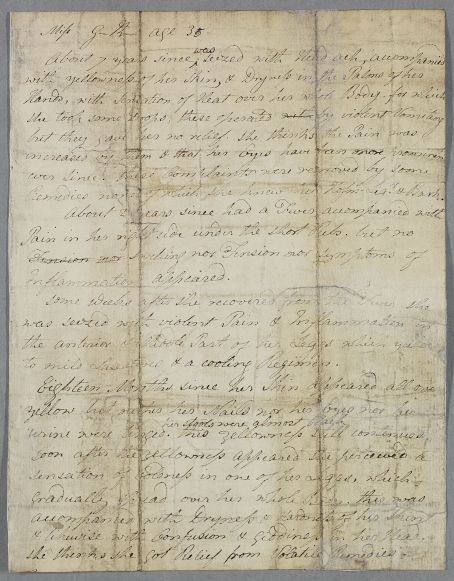 Miss G— R— age 35
About 7 years since was seized with Head ach, accompanied
with yellowness of her Skin, & Dryness in the Palms of her
Hands, with Sensation of Heat over her whole Body, for which
she took some drops, these operated by violent Vomiting
but they gave her no relief. she thinks the Pain was
increased by them & that her Eyes have been more prominent
ever since. these complaints were removed by some
Remedies none of which she knew but & Bark.
About 2 years since had a Fever accompanied with
Pain in her right side under the short Ribs. but no
Tension nor Swelling nor Tension nor symptoms of
Inflammation appeared.
Some weeks after she recovered from the Fever she
was seized with violent Pain & Inflammation in
the anterior & middle Part of her Legs which
to mild & a cooling Regimen.
Eighteen Months since her Skin appeared all over
Yellow but neither her Nails nor her Eyes nor her
urine were tinged. her stools were almost this Yellowness still continues.
Soon after the Yellowness appeared she perceived a
sensation of Coldness in one of her Legs, which
gradually spread over her whole Body, this was
accompanied with Dryness & Hardness of her Skin
& likewise with Confusion & Giddiness in her Head.
she thinks she got Relief from Volatile Remedies.